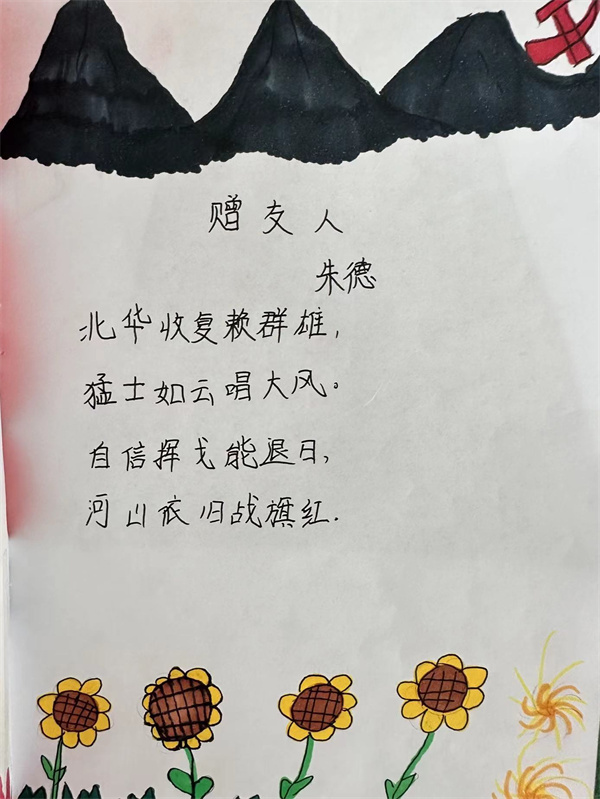 赠友人
朱德
北华收复赖群雄，
猛士如云唱大风。
自信挥戈能退日，
河山依旧战旗红.